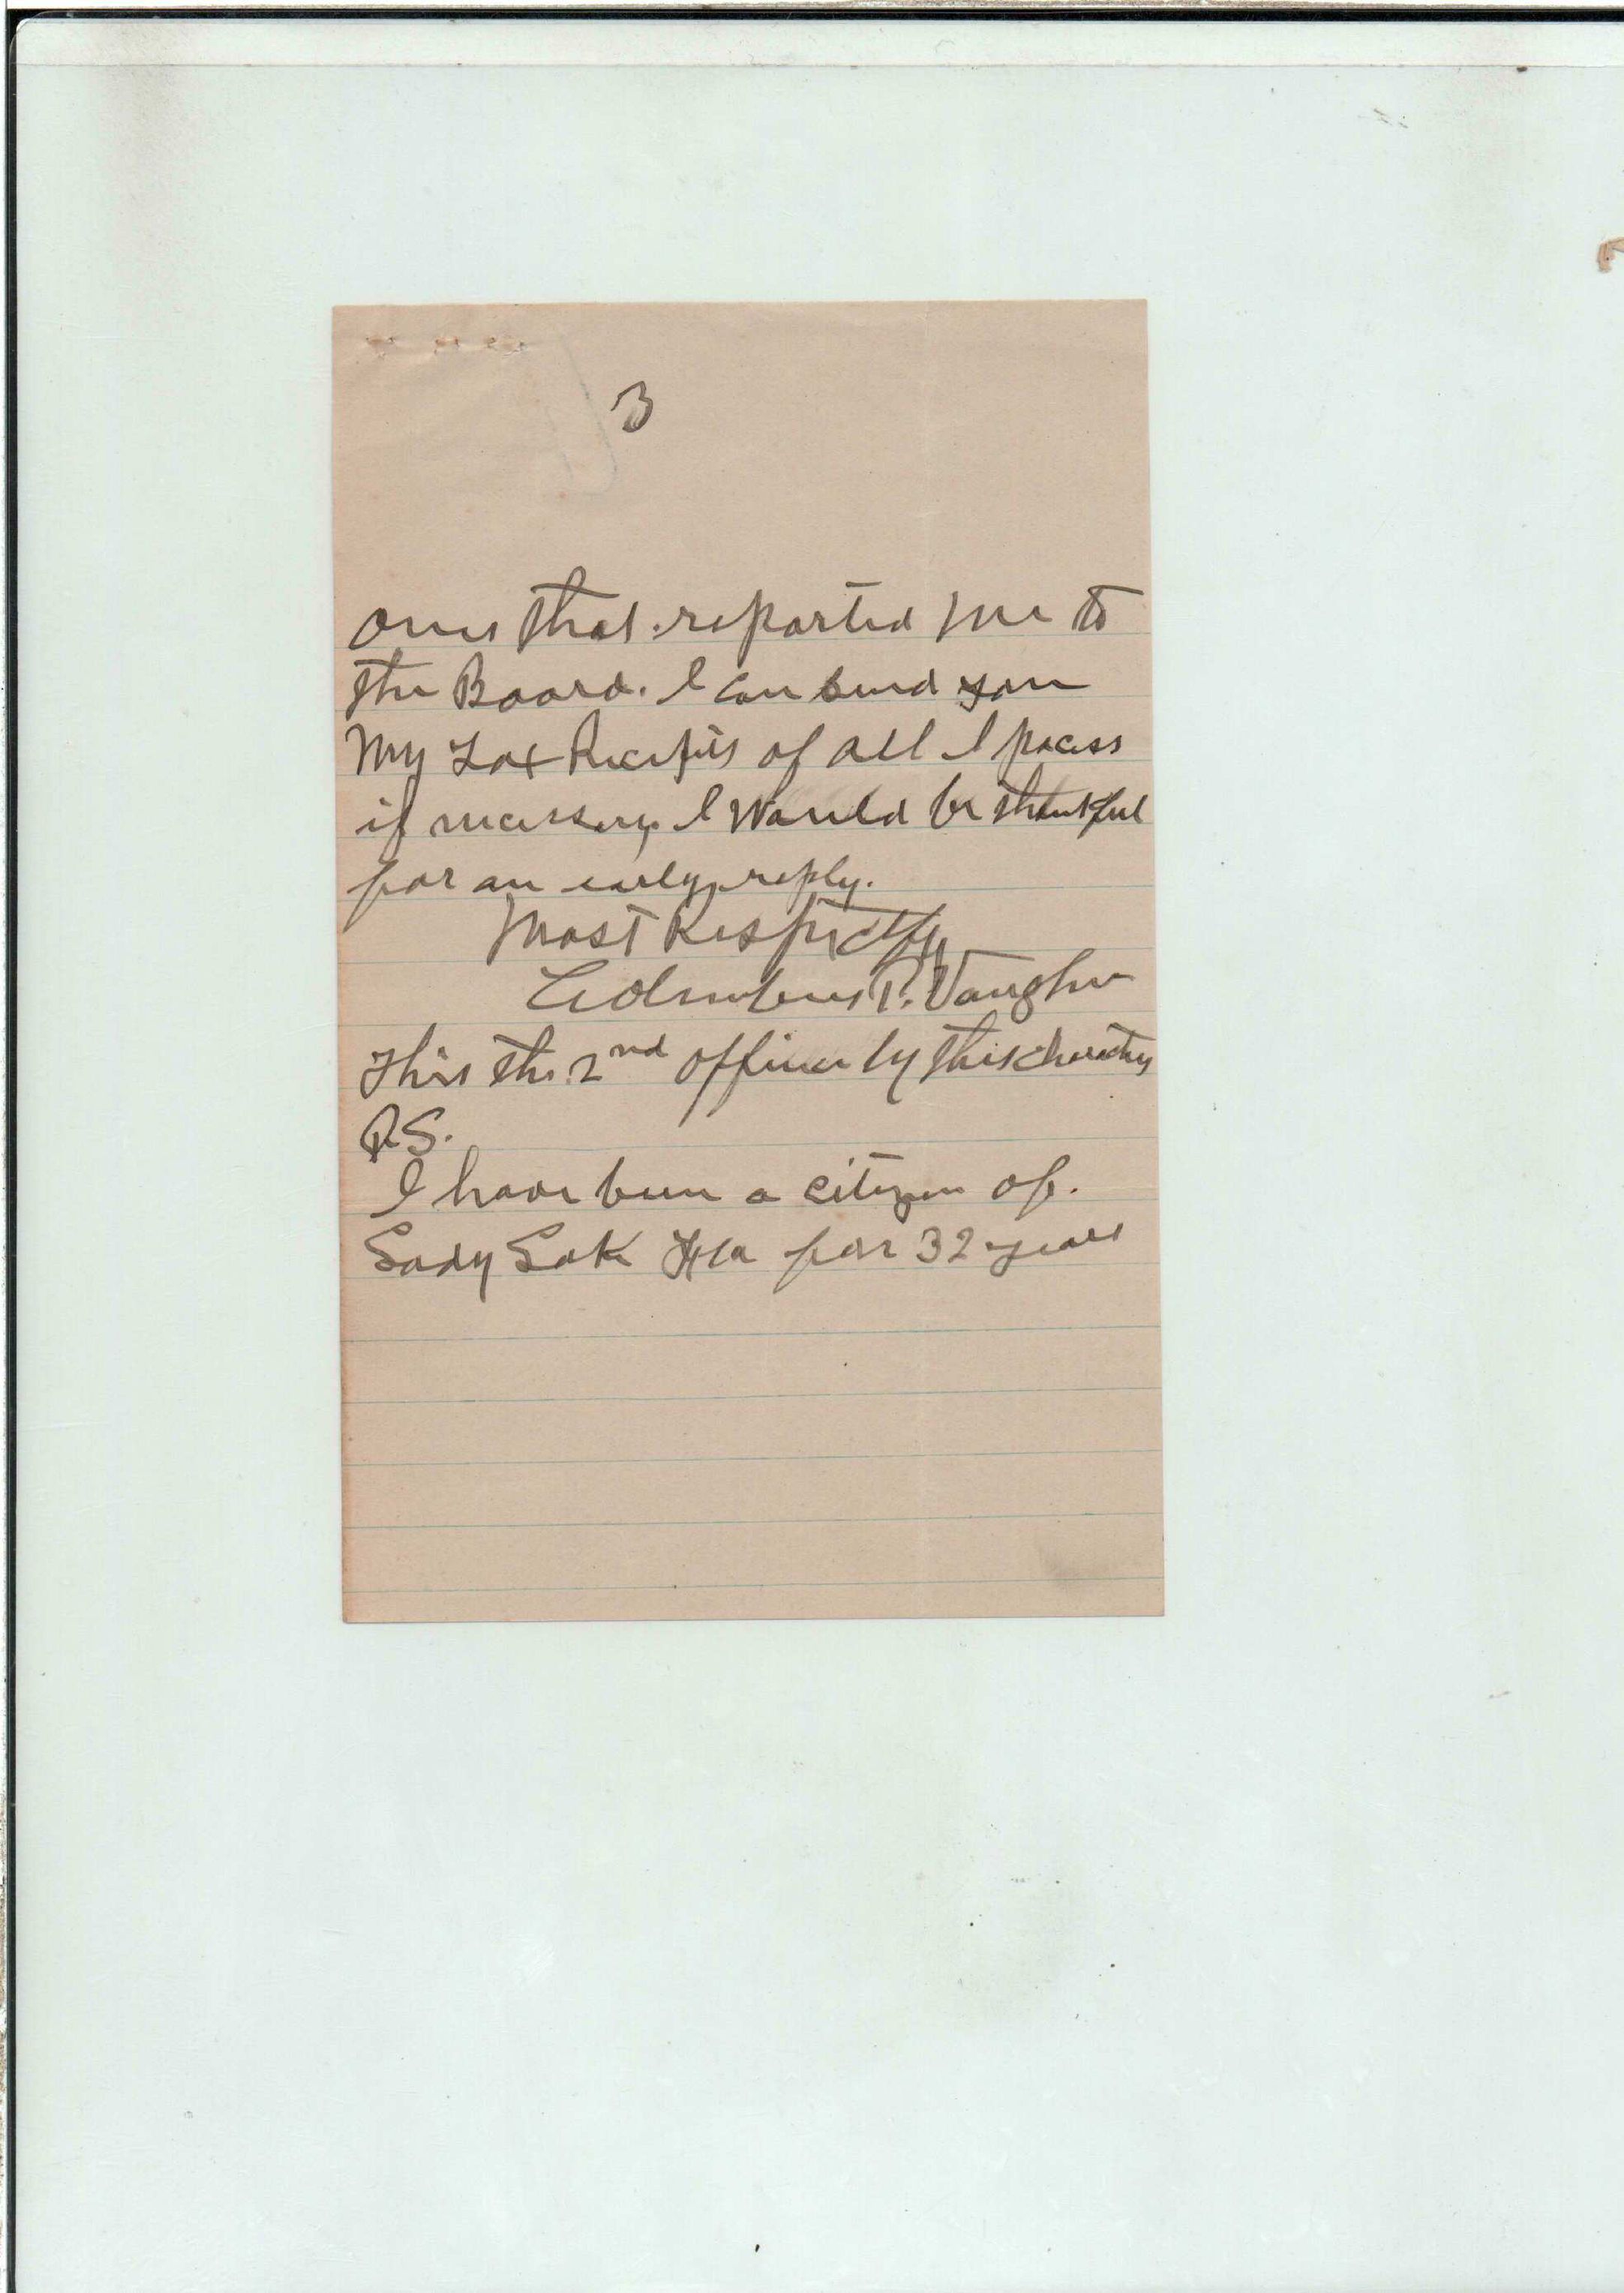 3
ones that reported me to
the Board. I can send you
My Tax Receipts of all I pocess
if necessary I Would be thankful
for an early reply.
Most Respectfly
Columbus P. Vaughn
This the 2nd offince by this
P.S.
I have been a citizen of.
Lady Lake Fla for 32 years